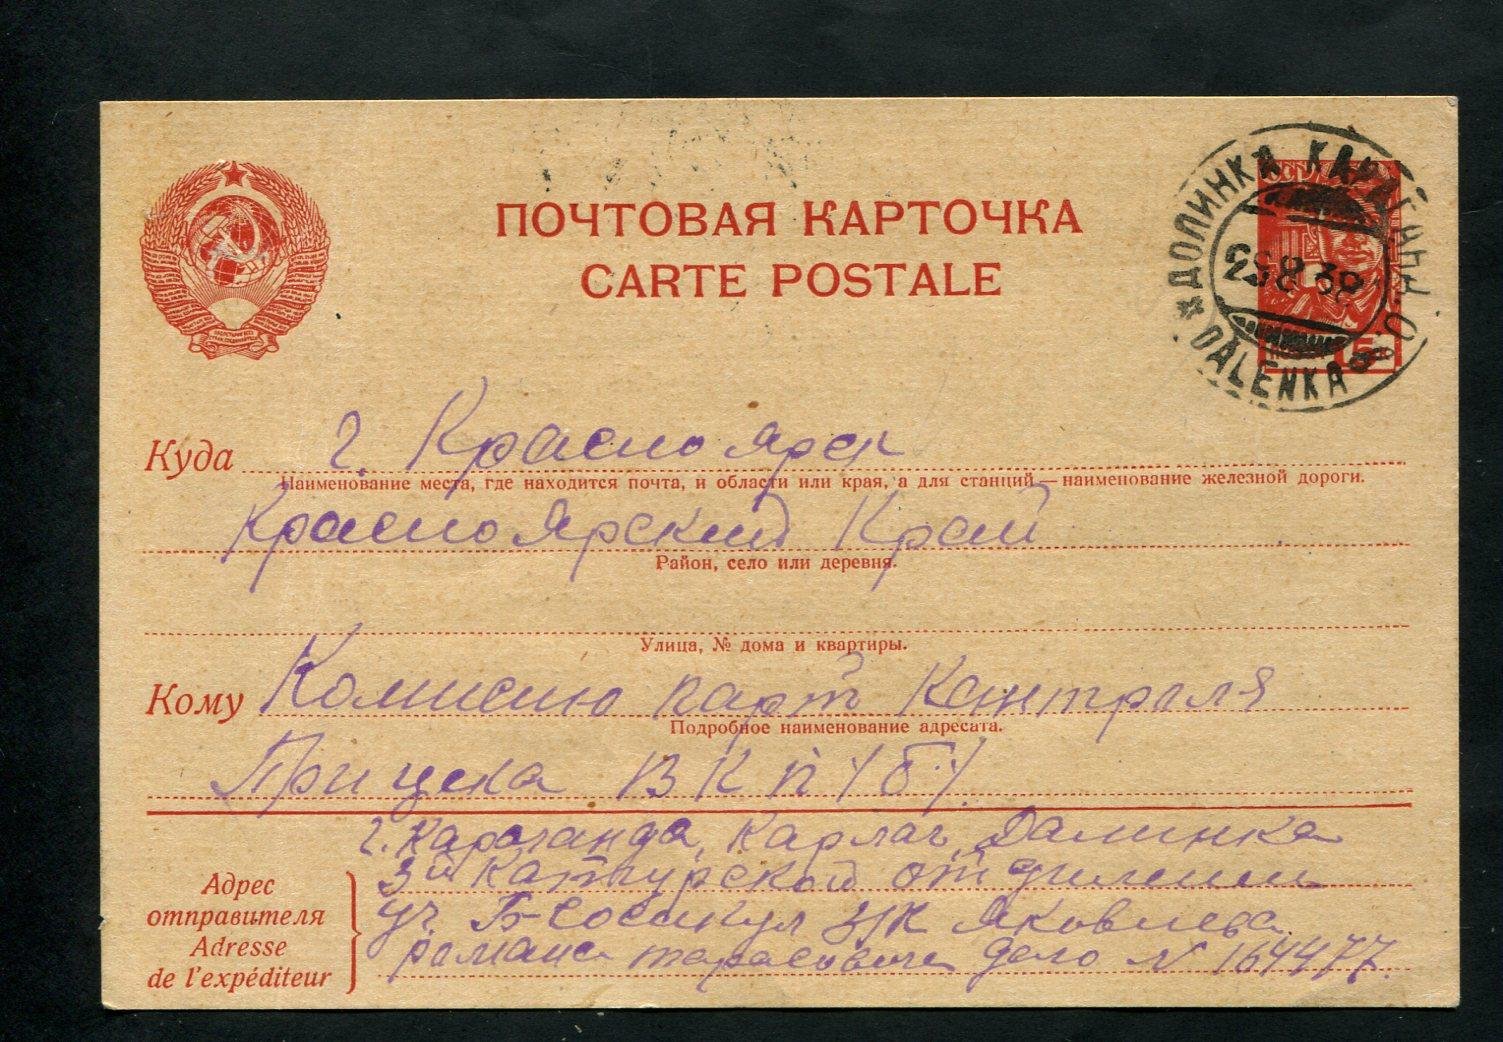 ПОЧТОВАЯ КАРТОЧКА
CARTE POSTALE
ДОЛИНКА КАРАГАНД. О.
25 8 38
DALENKA
5
Куда г. Красноярск
Наименование места, где находится почта, и области или края, а для станций — наименование железной дороги.
Красноярский Край
Район, село или деревня.
Улица, № дома и квартиры.
Кому Комисию парт Контроля
Подробное наименование адресата.
При цека ВКП(б).
г. Караганда, Карлаг, Далинка
Адрес
отправителя
Adresse
de l'expéditeur
уч. Б-Сосикул з/к Яковлева
романа тарасовича дело N 164477.